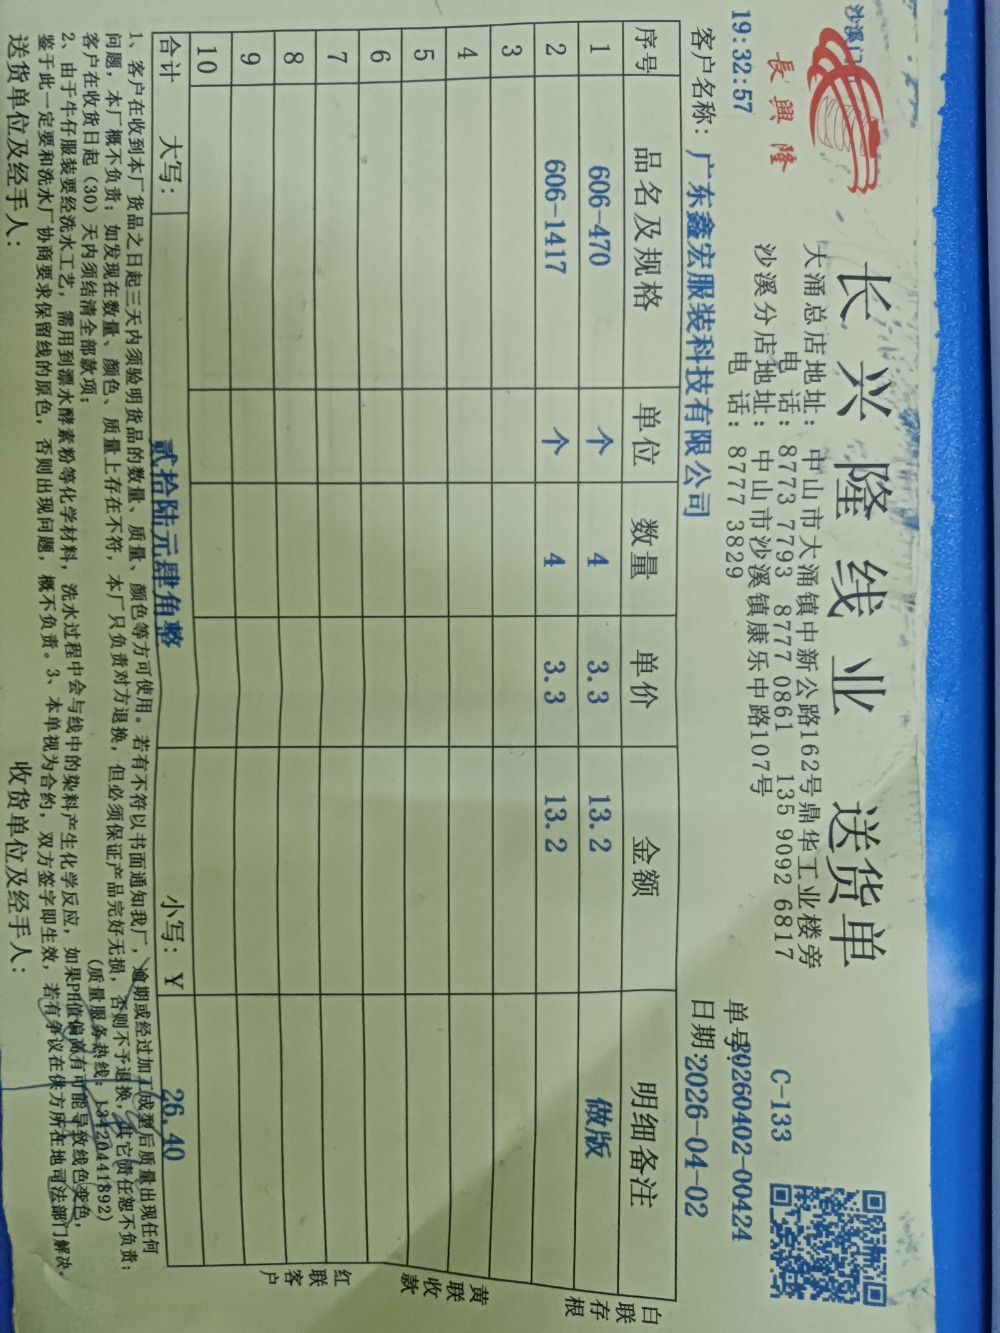 沙溪门
長興隆
长兴隆线业 送货单
大涌总店地址：中山市大涌镇中新公路162号鼎华工业楼旁
电 话：8773 7793 8777 0861 135 9092 6817
沙溪分店地址：中山市沙溪镇康乐中路107号
电 话：8777 3829
C-133
19:32:57
单号:20260402-00424
客户名称：广东鑫宏服装科技有限公司
日期:2026-04-02
序号 品名及规格 单位 数量 单价 金额 明细备注
1 606-470 个 4 3.3 13.2 做版
2 606-1417 个 4 3.3 13.2
3
4
5
6
7
8
9
10
合计 大写： 贰拾陆元肆角整 小写：￥ 26.40
白联存根
黄联收款
红联客户
1、客户在收到本厂货品之日起三天内须验明货品的数量、质量、颜色等方可使用。若有不符以书面通知我厂，逾期或经过加工成型后质量出现任何
问题，本厂概不负责；如发现在数量、颜色、质量上存在不符，本厂只负责对方退换，但必须保证产品完好无损，否则不予退换，其它责任恕不负责；
客户在收货日起（30）天内须结清全部款项； (质量服务热线：13420441892)
2、由于牛仔服装要经洗水工艺，需用到漂水酵素粉等化学材料，洗水过程中会与线中的染料产生化学反应，如果PH值偏高有可能导致线色变色，
鉴于此一定要和洗水厂协商要求保留线的原色，否则出现问题，概不负责。3、本单视为合约，双方签字即生效，若有争议在供方所在地司法部门解决。
送货单位及经手人： 收货单位及经手人：